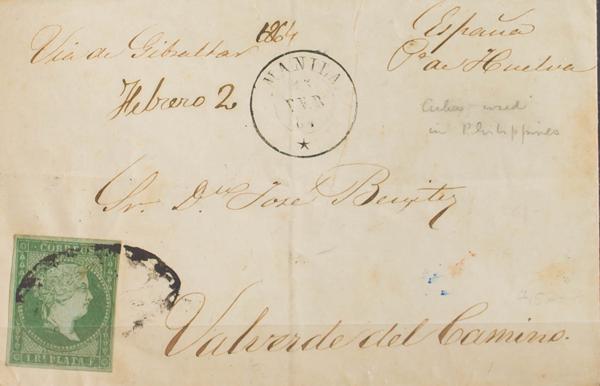 Via de Gibraltar 1864
Febrero 2
España
Pa de Huelva
MANILA
FEB
64
Cuba used
in Philippines
Sr. Dn José Benitez
CORREOS
1 Rl PLATA F
Valverde del Camino.